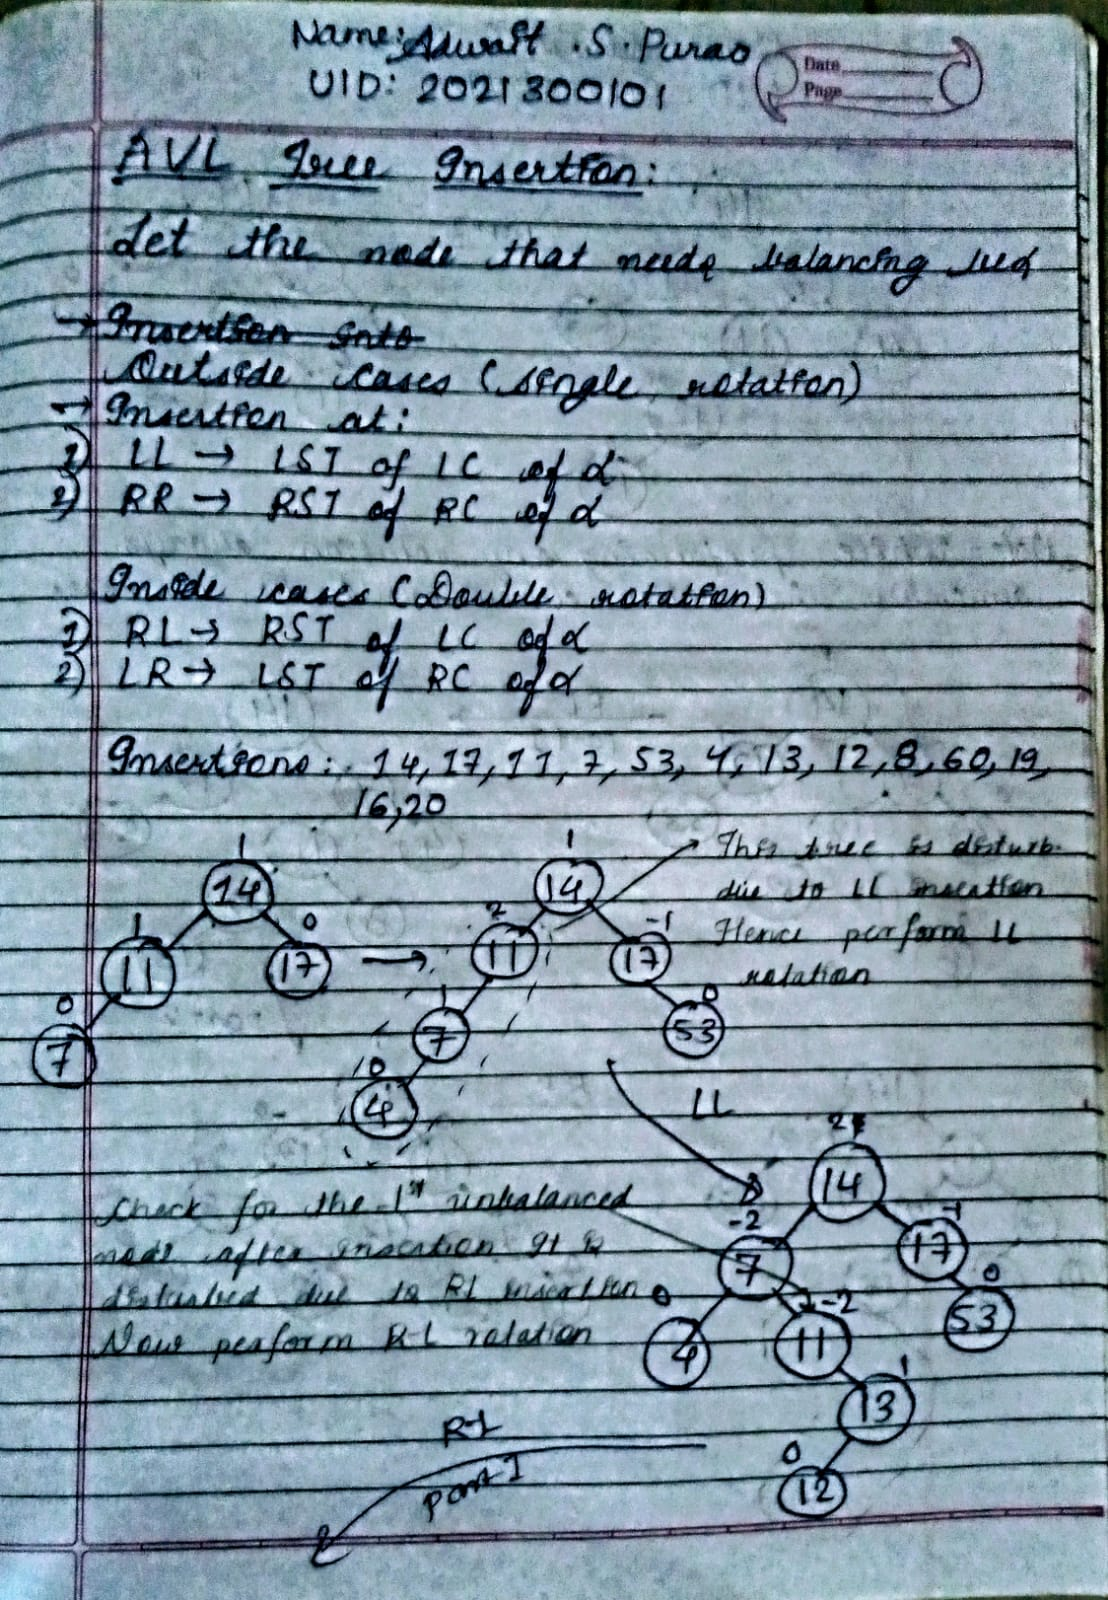 Name: Adwait .S. Purao
UID: 2021300101
Date
Page
AVL Tree Insertion:
Let the node that needs balancing be α
→ Insertion into
Outside cases (single rotation)
→ Insertion at:
1) LL → LST of LC of α
2) RR → RST of RC of α
Inside cases (Double rotation)
1) RL → RST of LC of α
2) LR → LST of RC of α
Insertions: 14, 17, 11, 7, 53, 4, 13, 12, 8, 60, 19,
16, 20
1
14
1
11
0
17
0
7
→
1
14
2
11
-1
17
1
7
0
53
0
4
This tree is disturb.
due to LL insertion
Hence perform LL
rotation
LL
2
14
-2
7
-1
17
0
4
-2
11
0
53
1
13
0
12
Check for the 1st unbalanced
node after insertion It is
disturbed due to RL insertion
Now perform R-L rotation
RL
Part 1